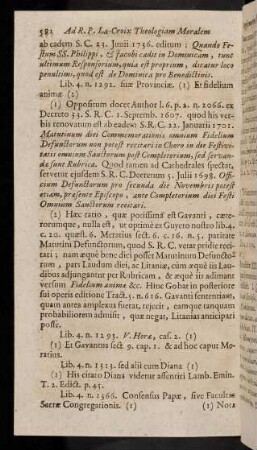 582 Ad R. P. La-Croix Theologiam Moralem
ab eadem S. C. 23. Junii 1736. editum : Quando Fe-
stum SS. Philippi, & Jacobi cadit in Dominicam, tunc
ultimum Responsorium, quia est proprium, dicatur loco
penultimi, quod est de Dominica pro Benedictinis.
Lib. 4. n. 1292. suæ Provinciæ. (1) Et fidelium
animæ (2)
(1) Oppositum docet Author l. 6. p. 2. n. 2066. ex
Decreto 33. S. R. C. 1. Septemb. 1607. quod his ver-
bis renovatum est ab eadem S. R. C. 22. Januarii 1701.
Matutinum diei Commemorationis omnium Fidelium
Defunctorum non potest recitari in Choro in die Festivi-
tatis omnium Sanctorum post Completorium, sed servan-
dæ sunt Rubricæ. Quod tamen ad Cathedrales spectat,
servetur ejusdem S. R. C. Decretum 5. Julii 1698. Offi-
cium Defunctorum pro secunda die Novembris potest
etiam, præsente Episcopo, ante Completorium diei Festi
Omnium Sanctorum recitari.
(2) Hæc ratio, quæ potissima est Gavanti, cæte-
rorumque, nulla est, ut optime ex Guyeto nostro lib. 4.
c. 20. quæst. 6. Meratius sect. 6. c. 16. n. 5. paritate
Matutini Defunctorum, quod S. R. C. vetat pridie reci-
tari ; nam æquè bene dici posset Matutinum Defuncto-
rum, pars Laudum diei, ac Litaniæ, cum æquè iis Lau-
dibus adjungantur per Rubricam, & æquè iis adimant
versum Fidelium animæ &c. Hinc Gobat in posteriore
sui operis editione Tract. 5. n. 616. Gavanti sententiam,
quam antea amplexus fuerat, rejecit, eamque tanquam
probabiliorem admisit, quæ negat, Litanias anticipari
posse.
Lib. 4. n. 1293. V. Horæ, cas. 2. (1)
(1) Et Gavantus sect 9. cap. 1. & ad hoc caput Me-
ratius.
Lib. 4. n. 1313. sed alii cum Diana (1)
(1) His citato Diana videtur assentiri Lamb. Emin.
T. 2. Edict. p. 45.
Lib. 4. n. 1366. Consensus Papæ, sive Facultas
Sacræ Congregationis. (1) (1) Nota